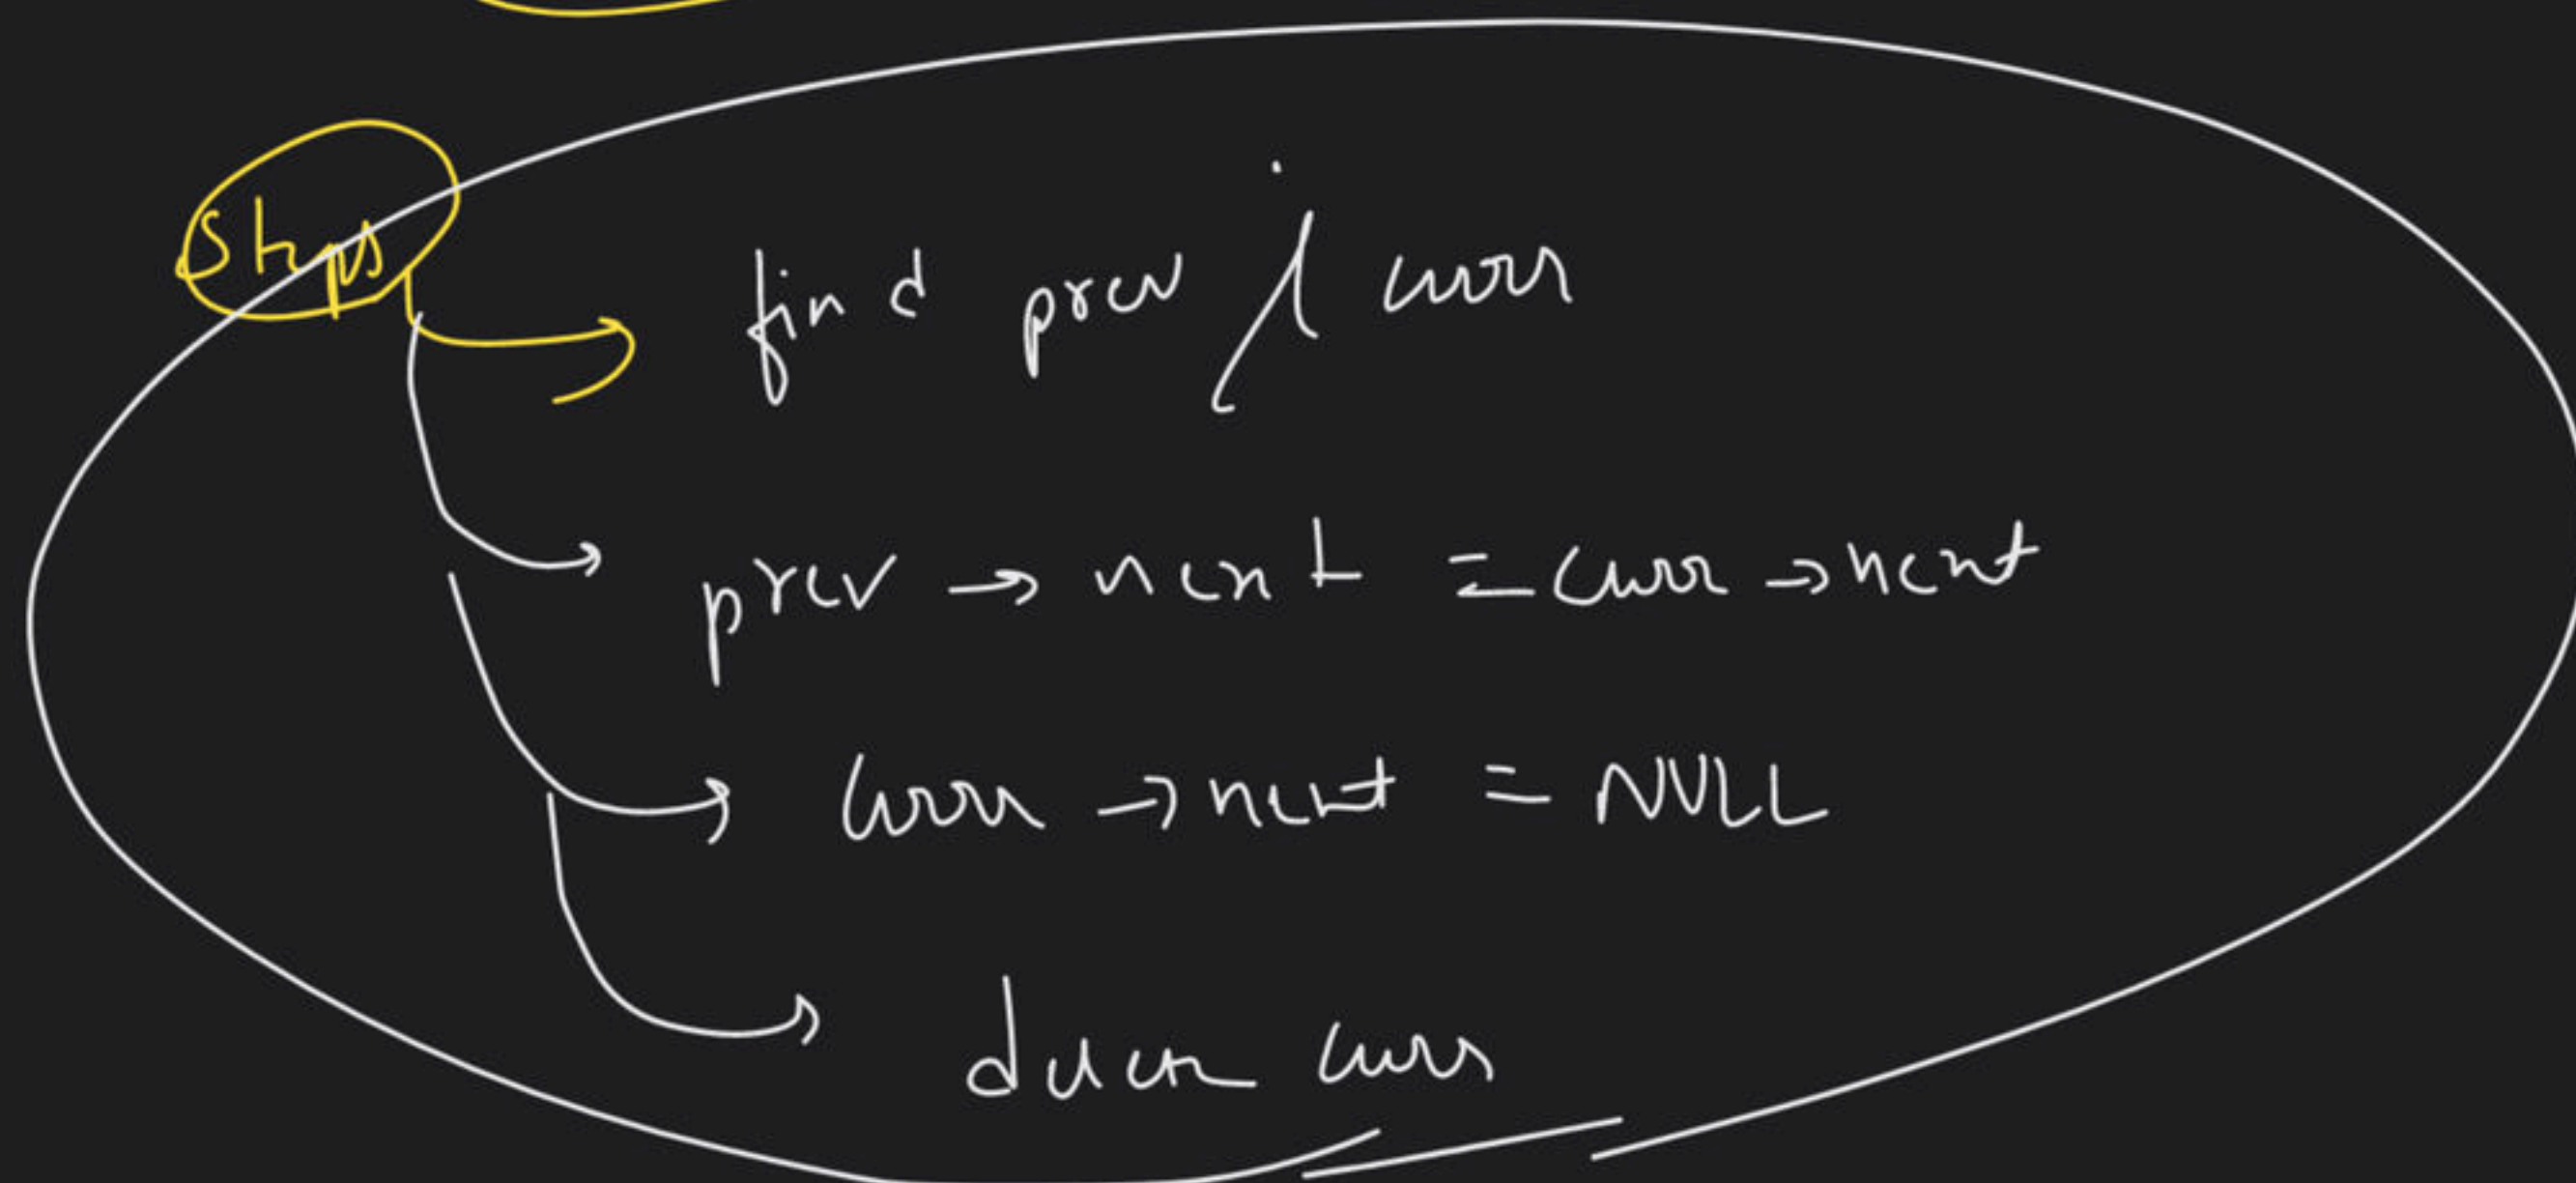 Steps
find prev / curr
prev → next = curr → next
curr → next = NULL
delete curr